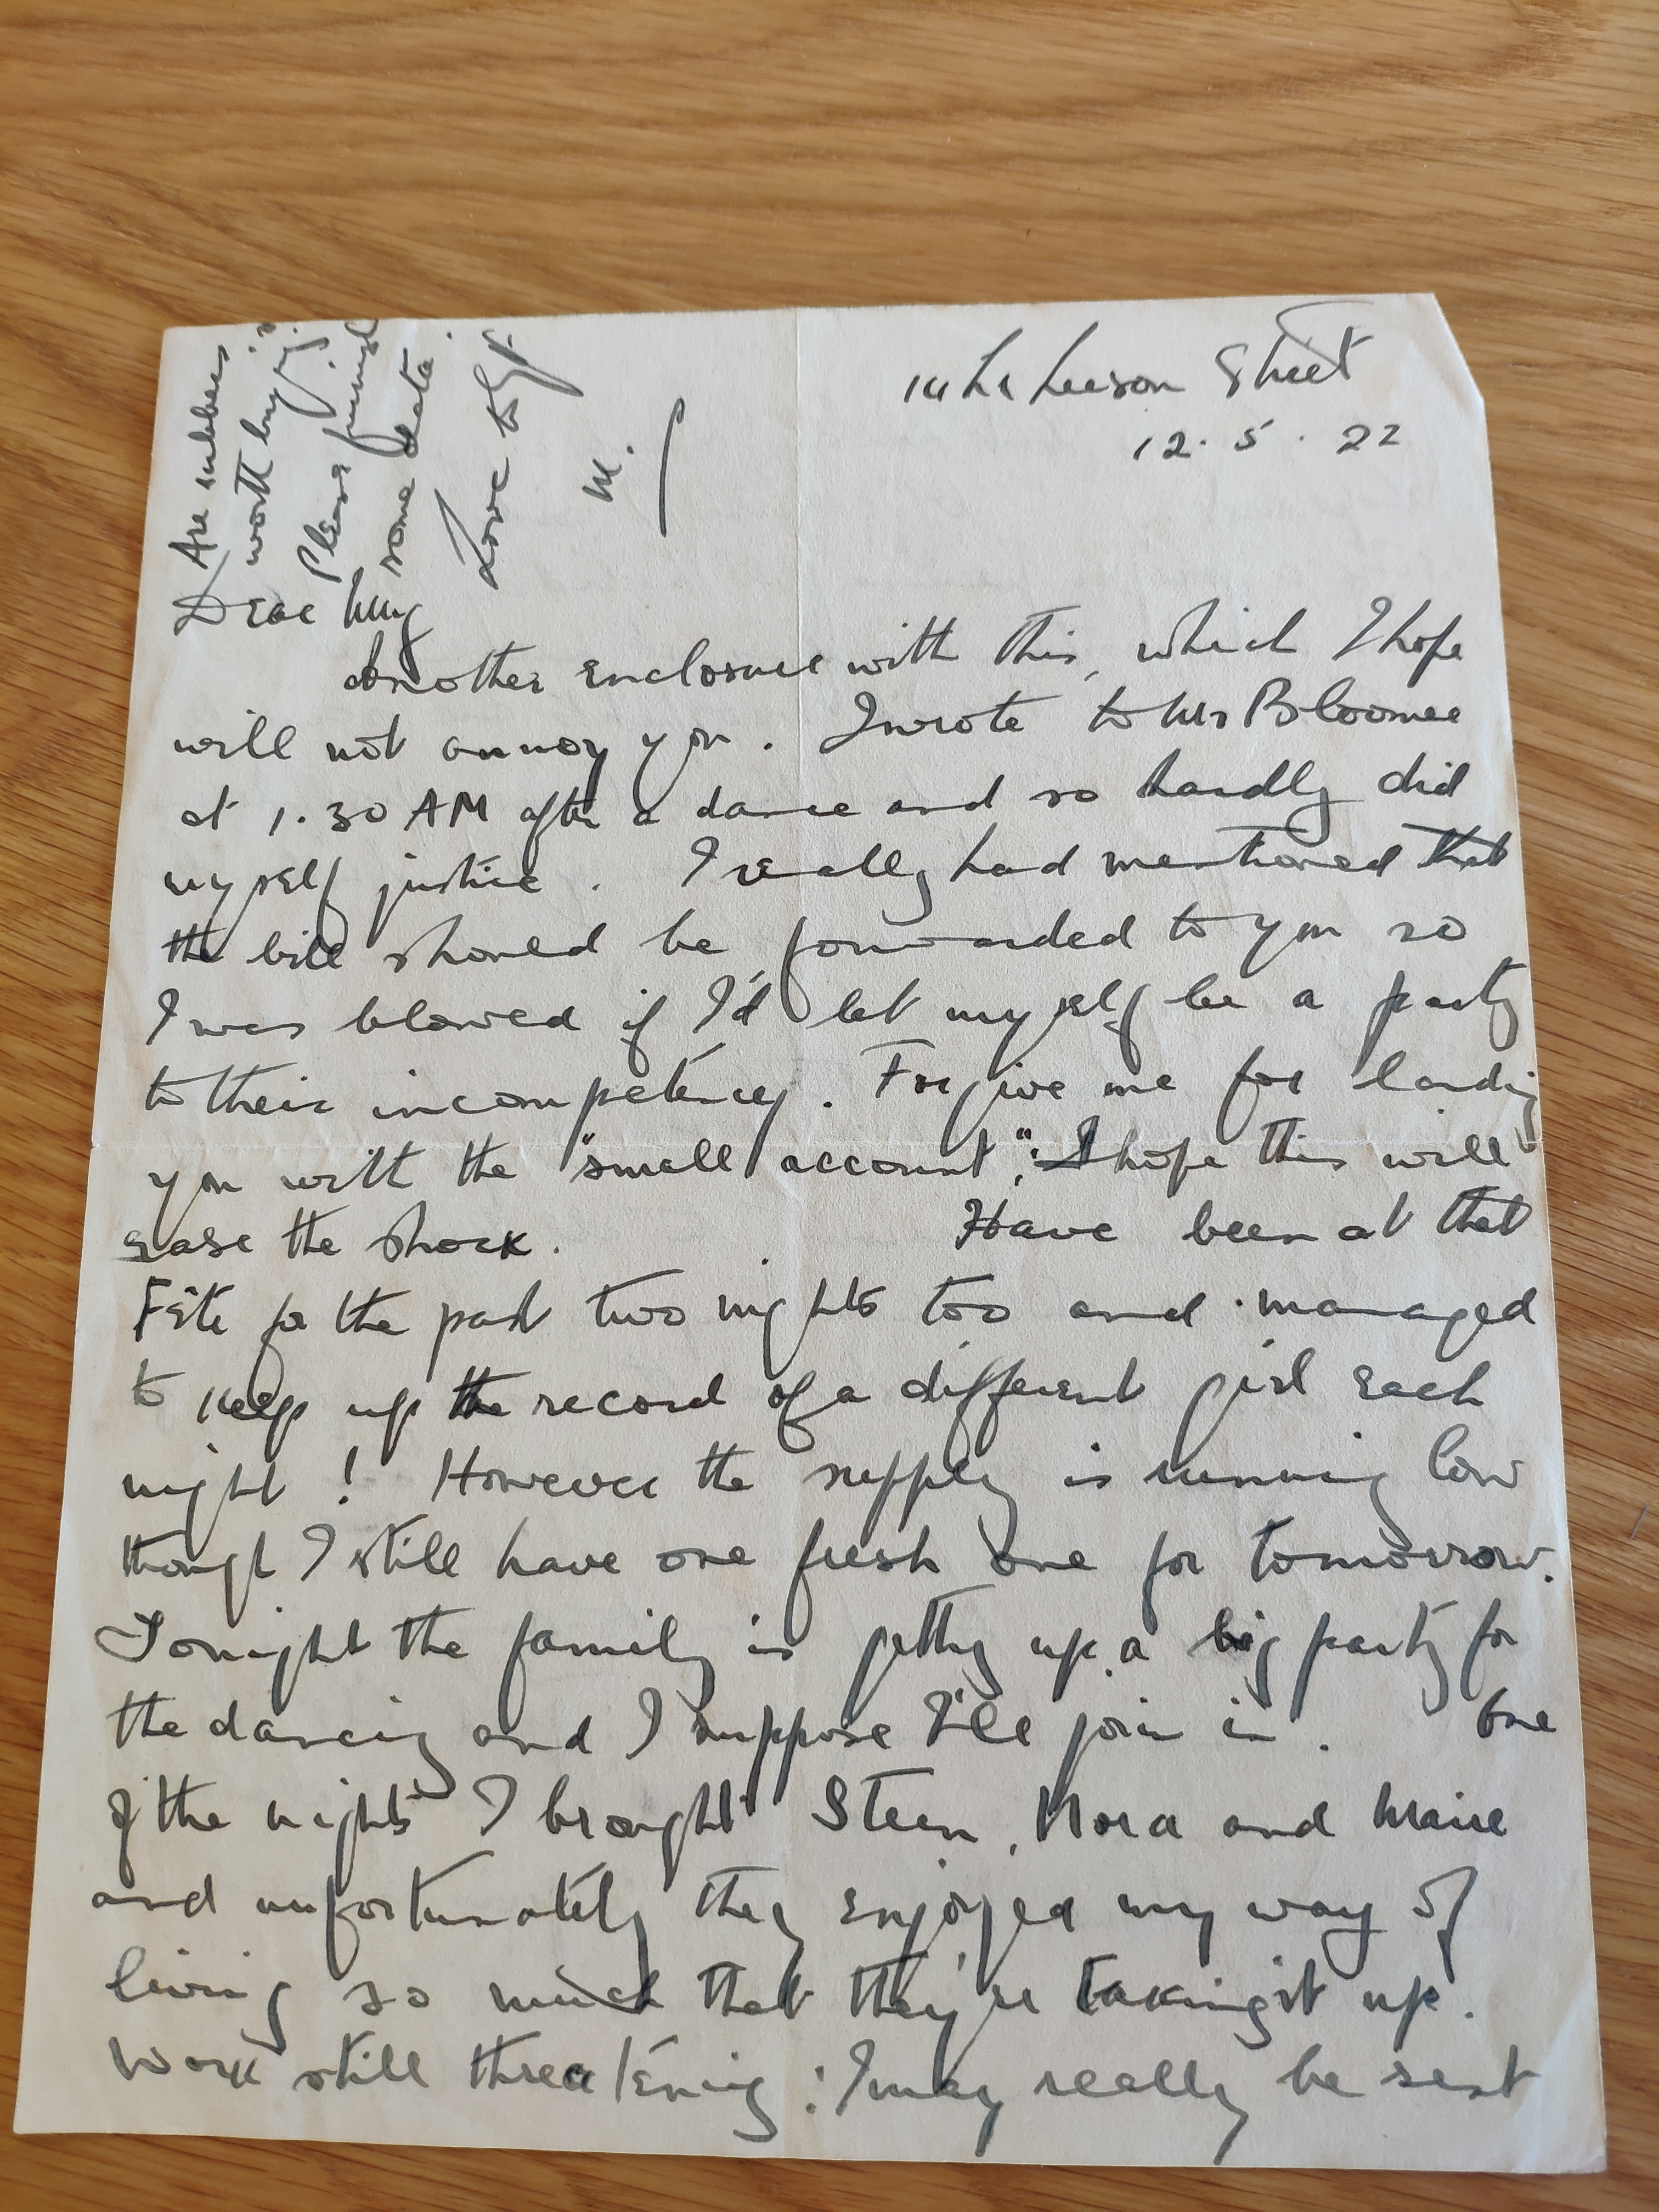 14 Lr Leeson Street
12. 5. 22
Are rubbers
worth buying?
Please
some data.
Love to
M.
Dear
Another enclosure with this, which I hope
will not annoy you. I wrote to Mr Bloomer
at 1.30 AM after a dance and so hardly did
myself justice. I really had mentioned that
the bill should be forwarded to you so
I was blowed if I'd let myself be a party
to their incompetency. Forgive me for landing
you with the "small account", I hope this will
ease the shock. Have been at that
Fête for the past two nights too and managed
to keep up the record of a different girl each
night! However the supply is running low
though I still have one fresh one for tomorrow.
Tonight the family is getting up a big party for
the dancing and I suppose I'll join in. One
of the nights I brought Steen, Nora and Maire
and unfortunately they enjoyed my way of
living so much that they're taking it up.
Work still threatening: I may really be sent